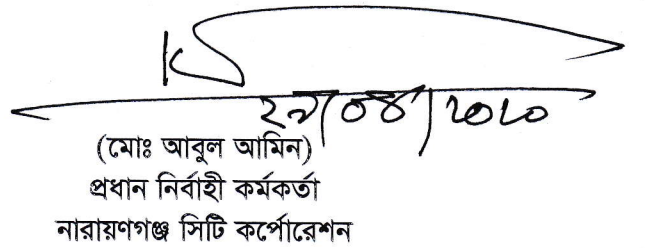 ২৯/০৪/২০২০
(মোঃ আবুল আমিন)
প্রধান নির্বাহী কর্মকর্তা
নারায়ণগঞ্জ সিটি কর্পোরেশন